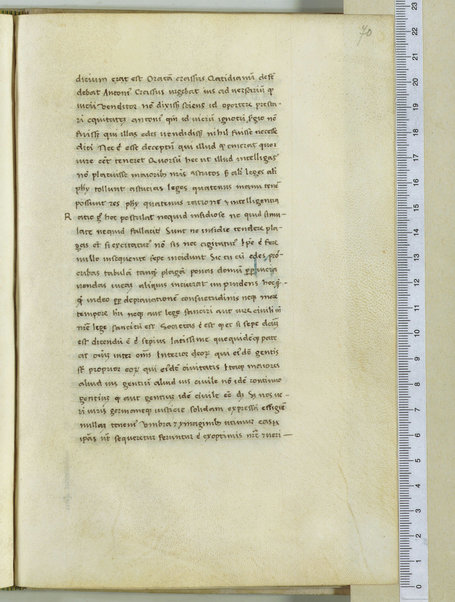 70
dicium erat est Orata crassus Gratidianu defē
debat Antoni Crassus urgebat ius ad versariū q
vitii venditor nō dixiss sciens id oportere presta
ri equitatē antoni qm id vitiū ignotū sergio nō
fuisse qui illas edes vendidiss nihil fuisse necesse
dici Nec ē esse deceptū qui illud q emerat quo
iure eet teneret Quorsū hec ut illud intelligas
nō placuisse maioribus nris astutos S ali leges ali
phy tollunt astucias leges quatenus manu tenē
possunt res phy quatenus ratione & intelligentia
Ratio g hoc postulat nequid insidiose ne quid simu
late nequid fallacit Sunt ne insidie tendere pla
gas et si excitatur nō sis nec agitatur Ipse ē fere
nullo insequente sepe incidunt Sic tu cū edes pro
scribas tabulā tanq plagā ponas domū
vendas in eas aliquis incurrat imprudens hoc
q video pp depravationē consuetudinis neq more
turpe hri neq aut lege sanciri aut iure civili
nē lege sancitū est Societas ē est q et si sepe dcm
est dicendū ē ē sepius latissime que quidē pate
at oiū inter omes Interior eor qui eidē gentis
st propior eor qui eidē civitatis Itaq maiores
aliud ius gentiū aliud ius civile nō idē continuo
gentiū q aut gentiū idē civile ee dz S nos ve
ri iuris germaneq iusticie solidam expressā effigiē
nullā tenem Umbra & imaginibus utimur easq
ipsas utī sequeremur feruntur ē ex optimis nre & veri